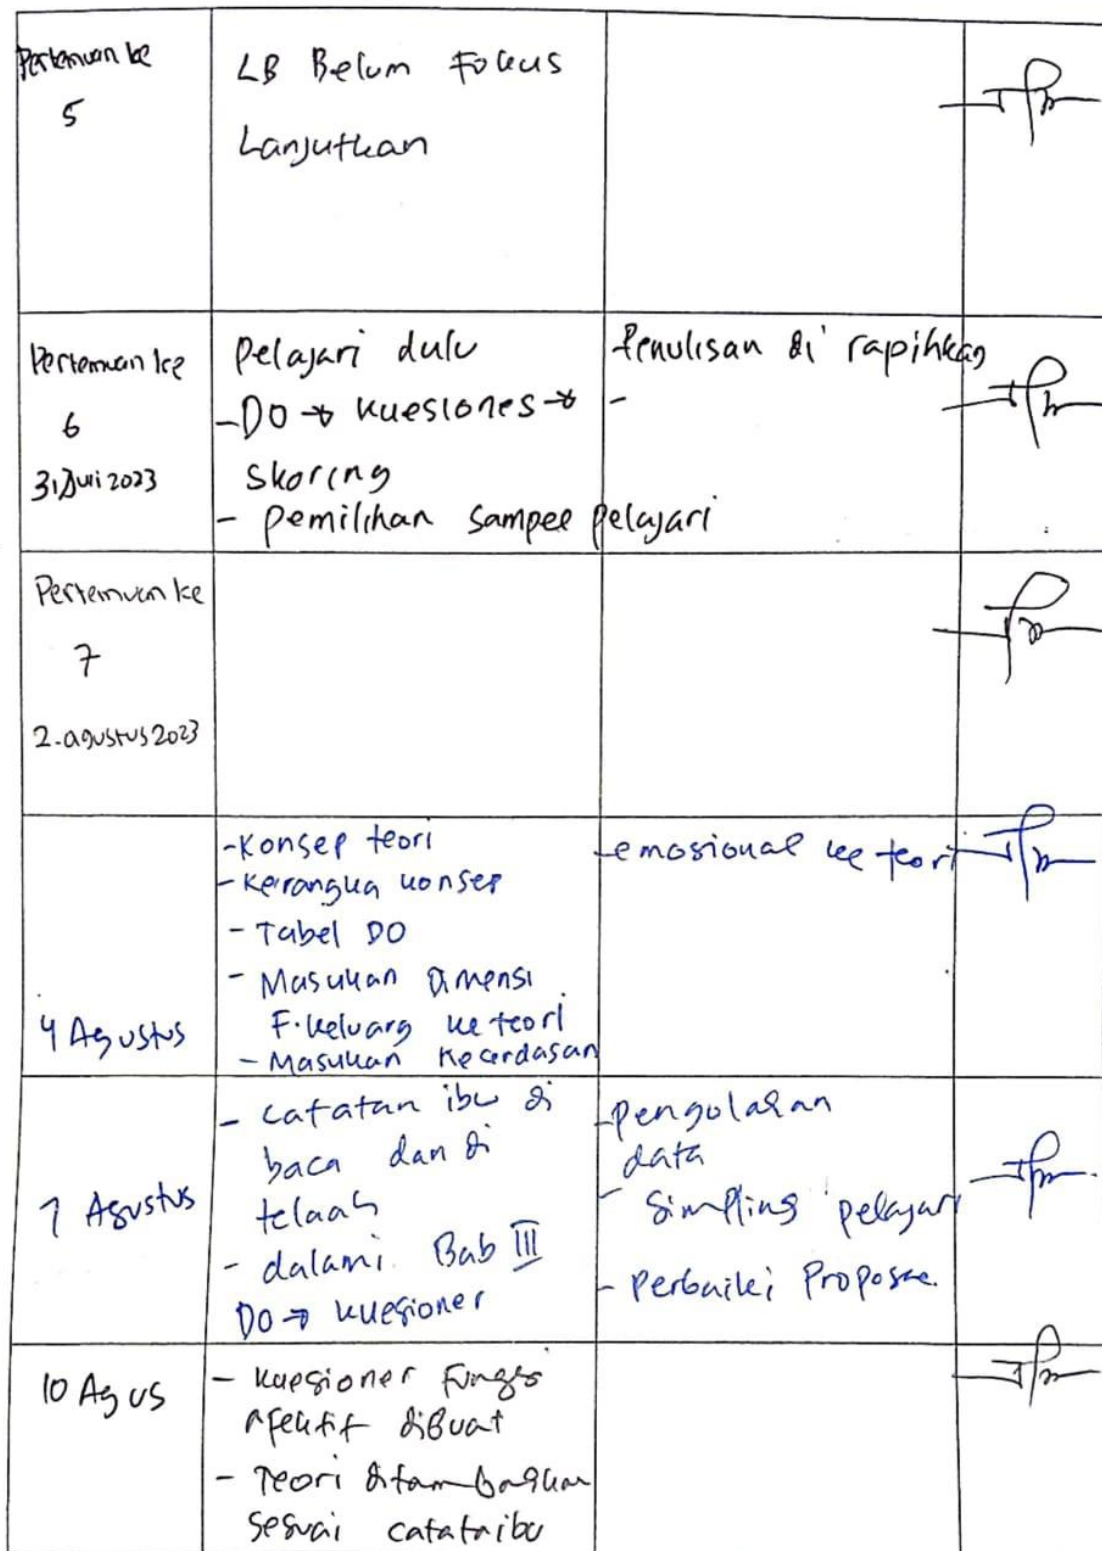 Pertemuan ke
5
LB Belum Fokus
Lanjutkan
Pertemuan ke
6
31 Juli 2023
Pelajari dulu
- DO → kuesiones →
skoring
- pemilihan sampel pelajari
Penulisan di rapihkan
-
Pertemuan ke
7
2. agustus 2023
4 Agustus
- Konsep teori
- Kerangka konsep
- Tabel DO
- Masukan Dimensi
F. keluarg ke teori
- Masukan Kecerdasan
- emosional ke teori
7 Agustus
- catatan ibu di
baca dan di
telaah
- dalami Bab III
DO → kuesioner
- pengolahan
data
- Simpling pelajari
- Perbaiki Proposal
10 Agus
- kuesioner Fungsi
Afektif dibuat
- Teori ditambahkan
sesuai catatn ibu